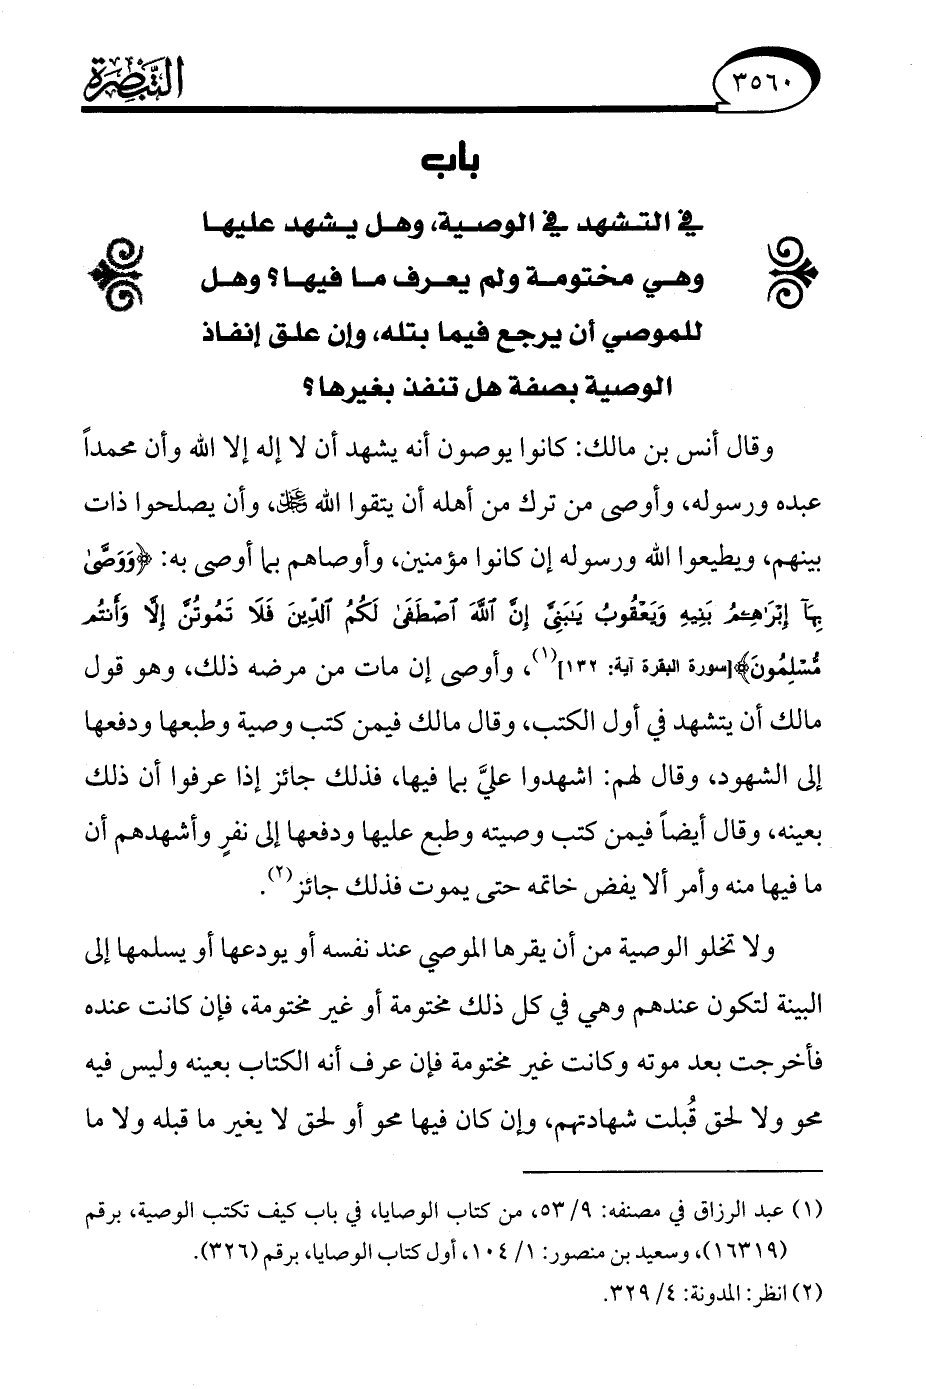 ٣٥٦٠
التبصرة
باب
في التشهد في الوصية، وهل يشهد عليها
وهي مختومة ولم يعرف ما فيها؟ وهل
للموصي أن يرجع فيما بتله، وإن علق إنفاذ
الوصية بصفة هل تنفذ بغيرها؟
وقال أنس بن مالك: كانوا يوصون أنه يشهد أن لا إله إلا الله وأن محمداً
عبده ورسوله، وأوصى من ترك من أهله أن يتقوا الله ﷻ، وأن يصلحوا ذات
بينهم، ويطيعوا الله ورسوله إن كانوا مؤمنين، وأوصاهم بما أوصى به: ﴿وَوَصَّىٰ
بِهَآ إِبْرَٰهِـۧمُ بَنِيهِ وَيَعْقُوبُ يَٰبَنِىَّ إِنَّ ٱللَّهَ ٱصْطَفَىٰ لَكُمُ ٱلدِّينَ فَلَا تَمُوتُنَّ إِلَّا وَأَنتُم
مُّسْلِمُونَ﴾[سورة البقرة آية: ١٣٢](١)، وأوصى إن مات من مرضه ذلك، وهو قول
مالك أن يتشهد في أول الكتب، وقال مالك فيمن كتب وصية وطبعها ودفعها
إلى الشهود، وقال لهم: اشهدوا عليَّ بما فيها، فذلك جائز إذا عرفوا أن ذلك
بعينه، وقال أيضاً فيمن كتب وصيته وطبع عليها ودفعها إلى نفرٍ وأشهدهم أن
ما فيها منه وأمر ألا يفض خاتمه حتى يموت فذلك جائز(٢).
ولا تخلو الوصية من أن يقرها الموصي عند نفسه أو يودعها أو يسلمها إلى
البينة لتكون عندهم وهي في كل ذلك مختومة أو غير مختومة، فإن كانت عنده
فأخرجت بعد موته وكانت غير مختومة فإن عرف أنه الكتاب بعينه وليس فيه
محو ولا لحق قُبلت شهادتهم، وإن كان فيها محو أو لحق لا يغير ما قبله ولا ما
(١) عبد الرزاق في مصنفه: ٩/ ٥٣، من كتاب الوصايا، في باب كيف تكتب الوصية، برقم
(١٦٣١٩)، وسعيد بن منصور: ١/ ١٠٤، أول كتاب الوصايا، برقم (٣٢٦).
(٢) انظر: المدونة: ٤/ ٣٢٩.